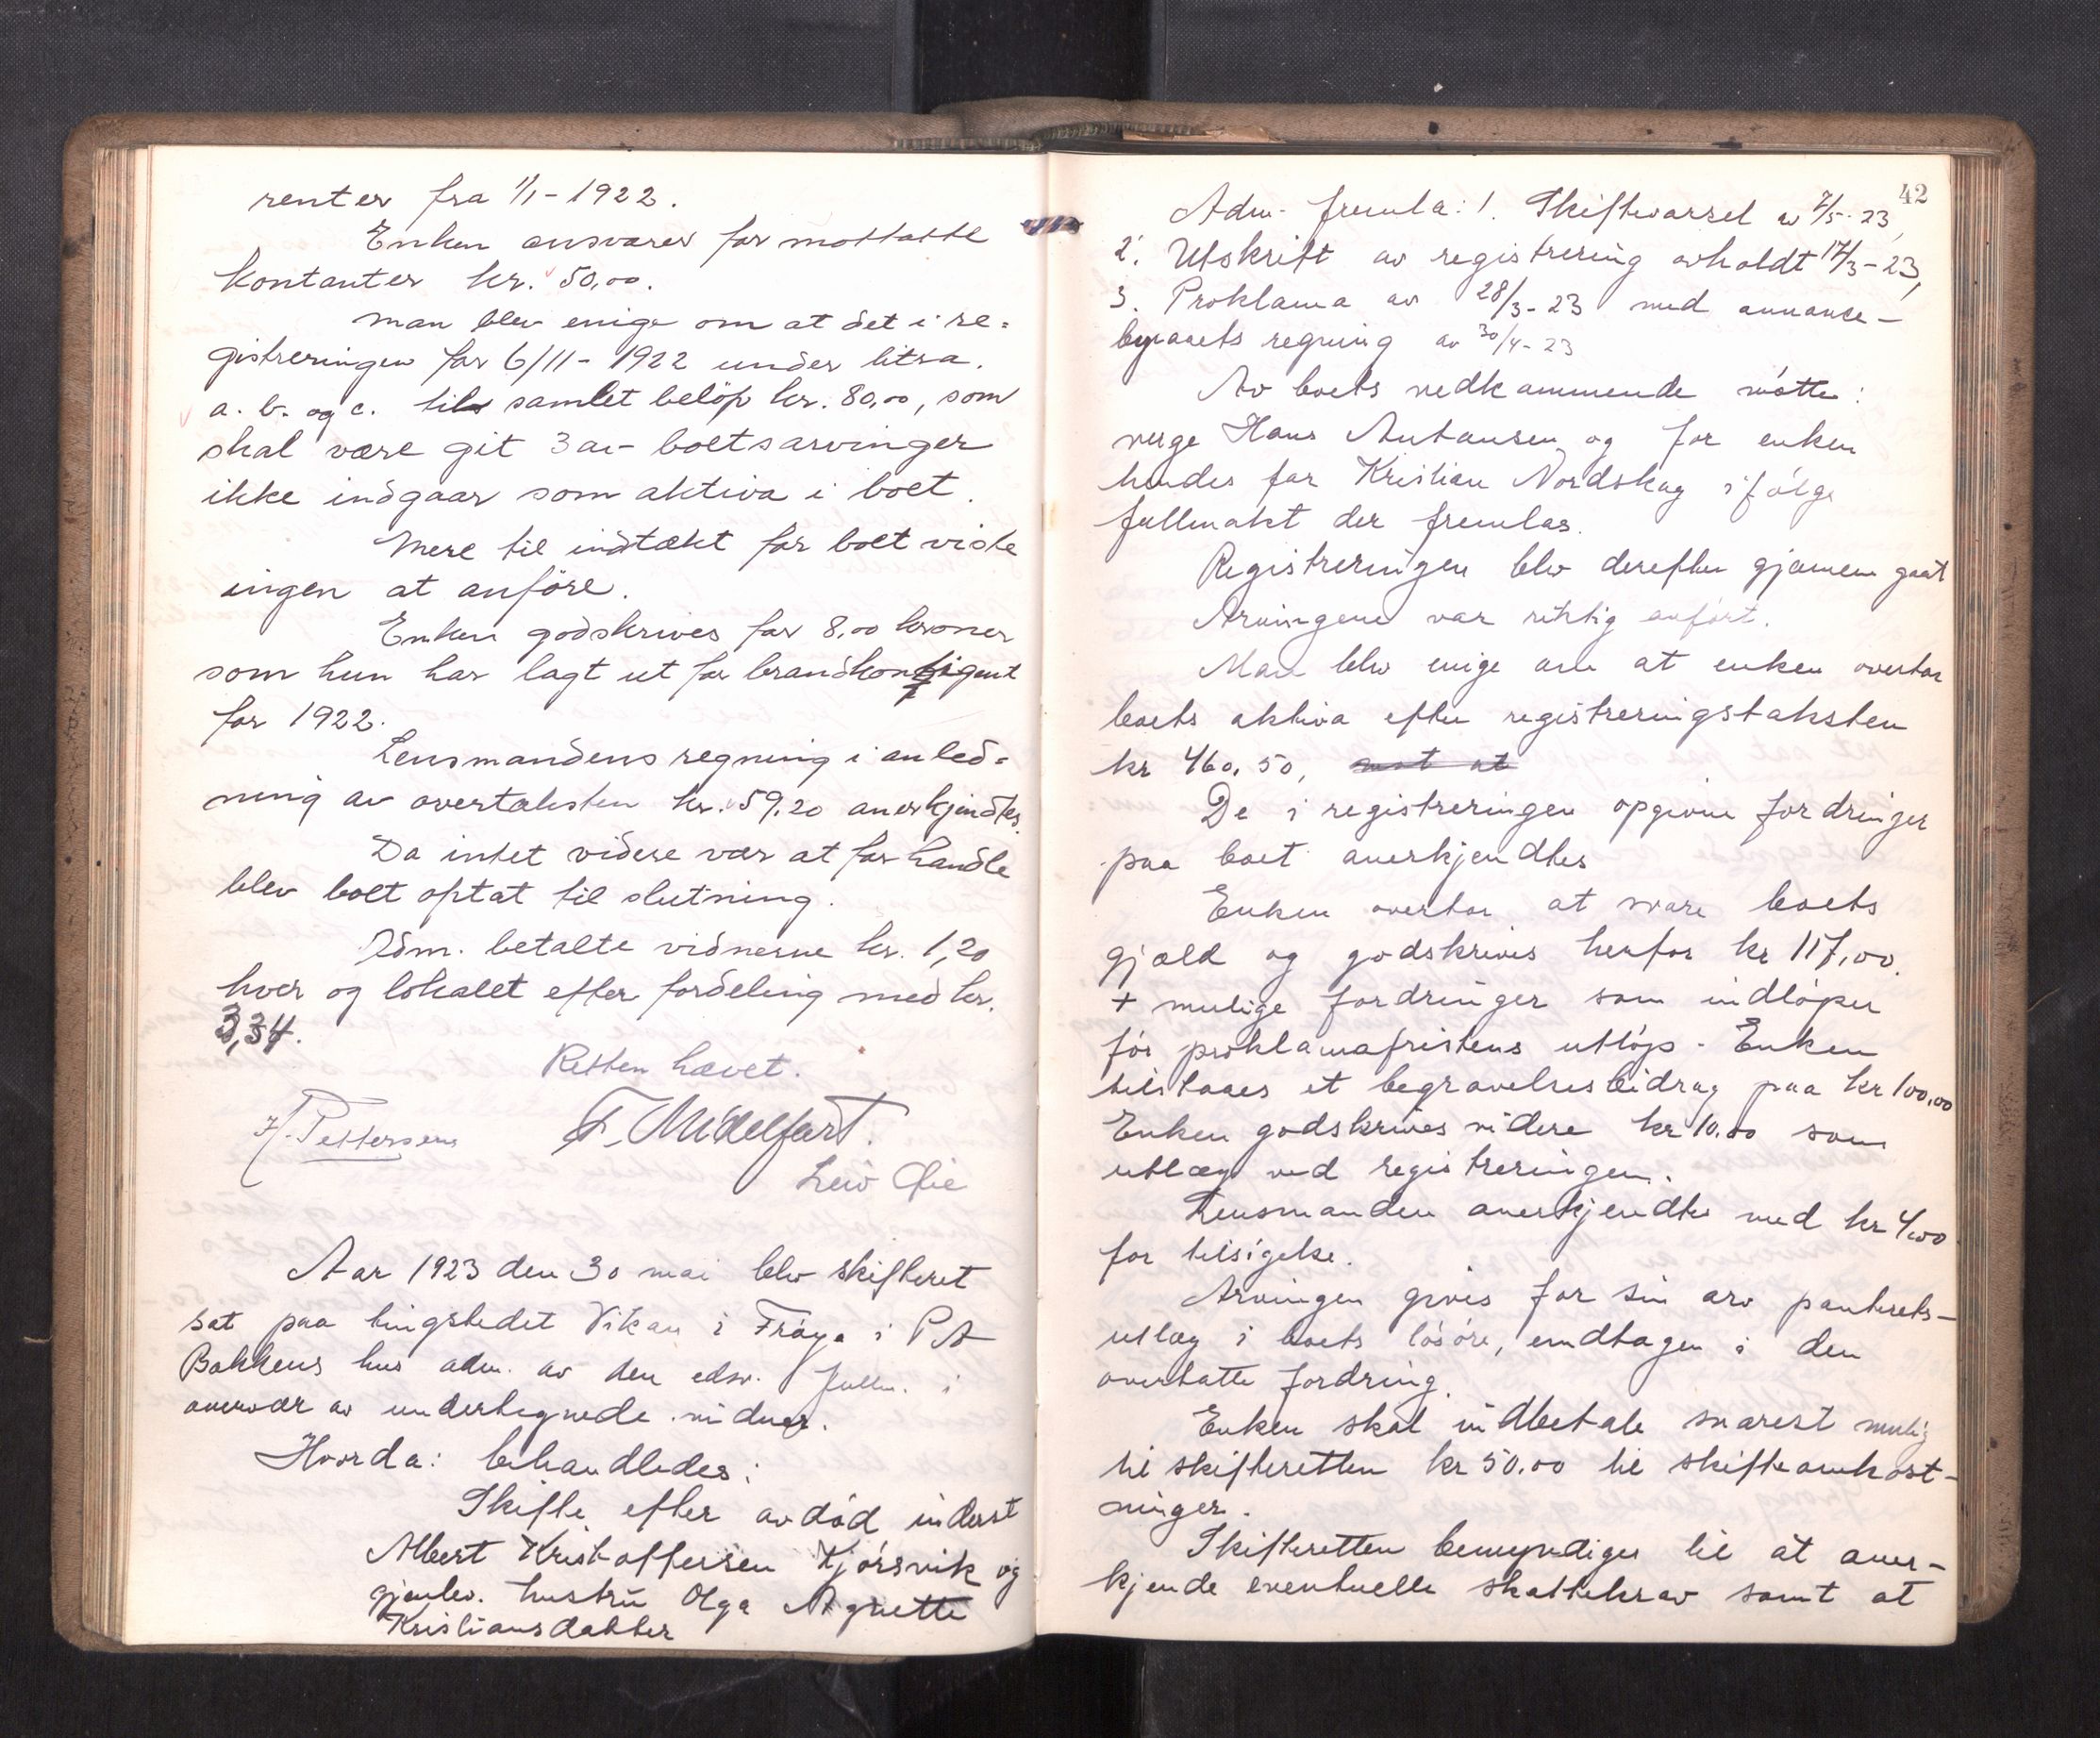 renter fra 1/1 - 1922.
Enken ansvarer for mottatte
kontanter kr. 50,00.
Man blev enige om at det i re-
gistreringen for 6/11 - 1922 under litra.
a. b. og c. til samlet beløp kr. 80,00, som
skal være git 3 av boets arvinger
ikke indgaar som aktiva i boet.
Mere til indtækt for boet viste
ingen at anføre.
Enken godskrives for 8,00 kroner
som hun har lagt ut for brandkontigent
for 1922.
Lensmandens regning i anled-
ning av overtaksten kr. 59,20 anerkjendtes.
Da intet videre var at forhandle
blev boet optat til slutning.
Adm. betalte vidnerne kr. 1,20
hver og lokalet efter fordeling med kr.
3,34.
Retten hævet.
H. Pettersen F. Midelfart.
Leiv Øie
Aar 1923 den 30 mai blev skifteret
sat paa tingstedet Vikan i Frøya i P A
Bakkens hus adm. av den edsv. fullm. i
overvær av undertegnede vidner.
Hvorda: behandledes:
Skifte efter avdød inderst
Albert Kristoffersen Kjørsvik og
gjenlev. hustru Olga Agnette
Kristiansdatter
42
Adm. fremla: 1. Skiftevarsel av 7/5-23,
2. Utskrift av registrering avholdt 17/3-23,
3. Proklama av 28/3-23 med annonce-
byraaets regning av 30/4-23
Av boets vedkommende møtte:
verge Hans Antonsen og for enken
hendes far Kristian Nordskag ifølge
fullmakt der fremlas.
Registreringen blev derefter gjennem gaat
Arvingene var riktig anført.
Man blev enige om at enken overtar
boets aktiva efter registreringstaksten
kr 460,50, mot at
De i registreringen opgivne fordringer
paa boet anerkjendtes
Enken overtar at svare boets
gjæld og godskrives herfor kr 117,00.
+ mulige fordringer som indløper
før proklamafristens utløp. Enken
tilstaaes et begravelsesbidrag paa kr 100,00
Enken godskrives videre kr 10.00 som
utlæg ved registreringen.
Lensmanden anerkjendtes med kr 4,00
for tilsigelse.
Arvingen gives for sin arv panterets-
utlæg i boets løsøre, undtagen i den
overtatte fordring.
Enken skal indbetale snarest mulig
til skifteretten kr 50.00 til skifteomkost-
ninger.
Skifteretten bemyndiges til at aner-
kjende eventuelle skattekrav samt at